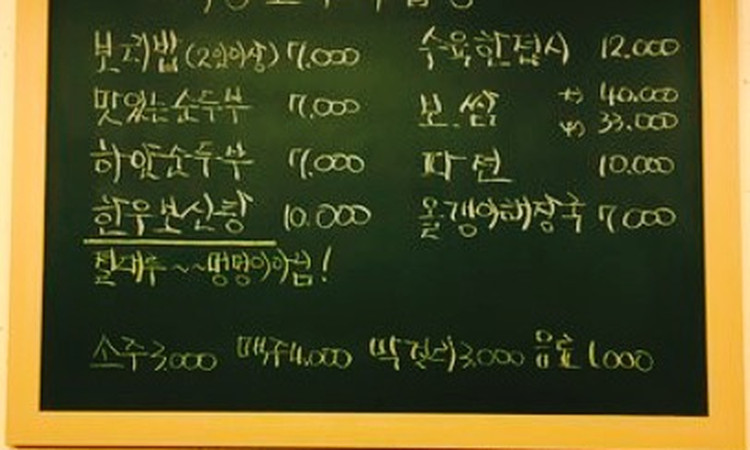 보리밥 (2인이상) 7.000
맛있는순두부 7.000
하얀순두부 7.000
한우보신탕 10.000
절대루~~멍멍이아님!
수육한접시 12.000
보쌈 大) 40.000
中) 33.000
파전 10.000
올갱이해장국 7000
소주3,000 맥주4,000 막걸리3,000 음료1,000